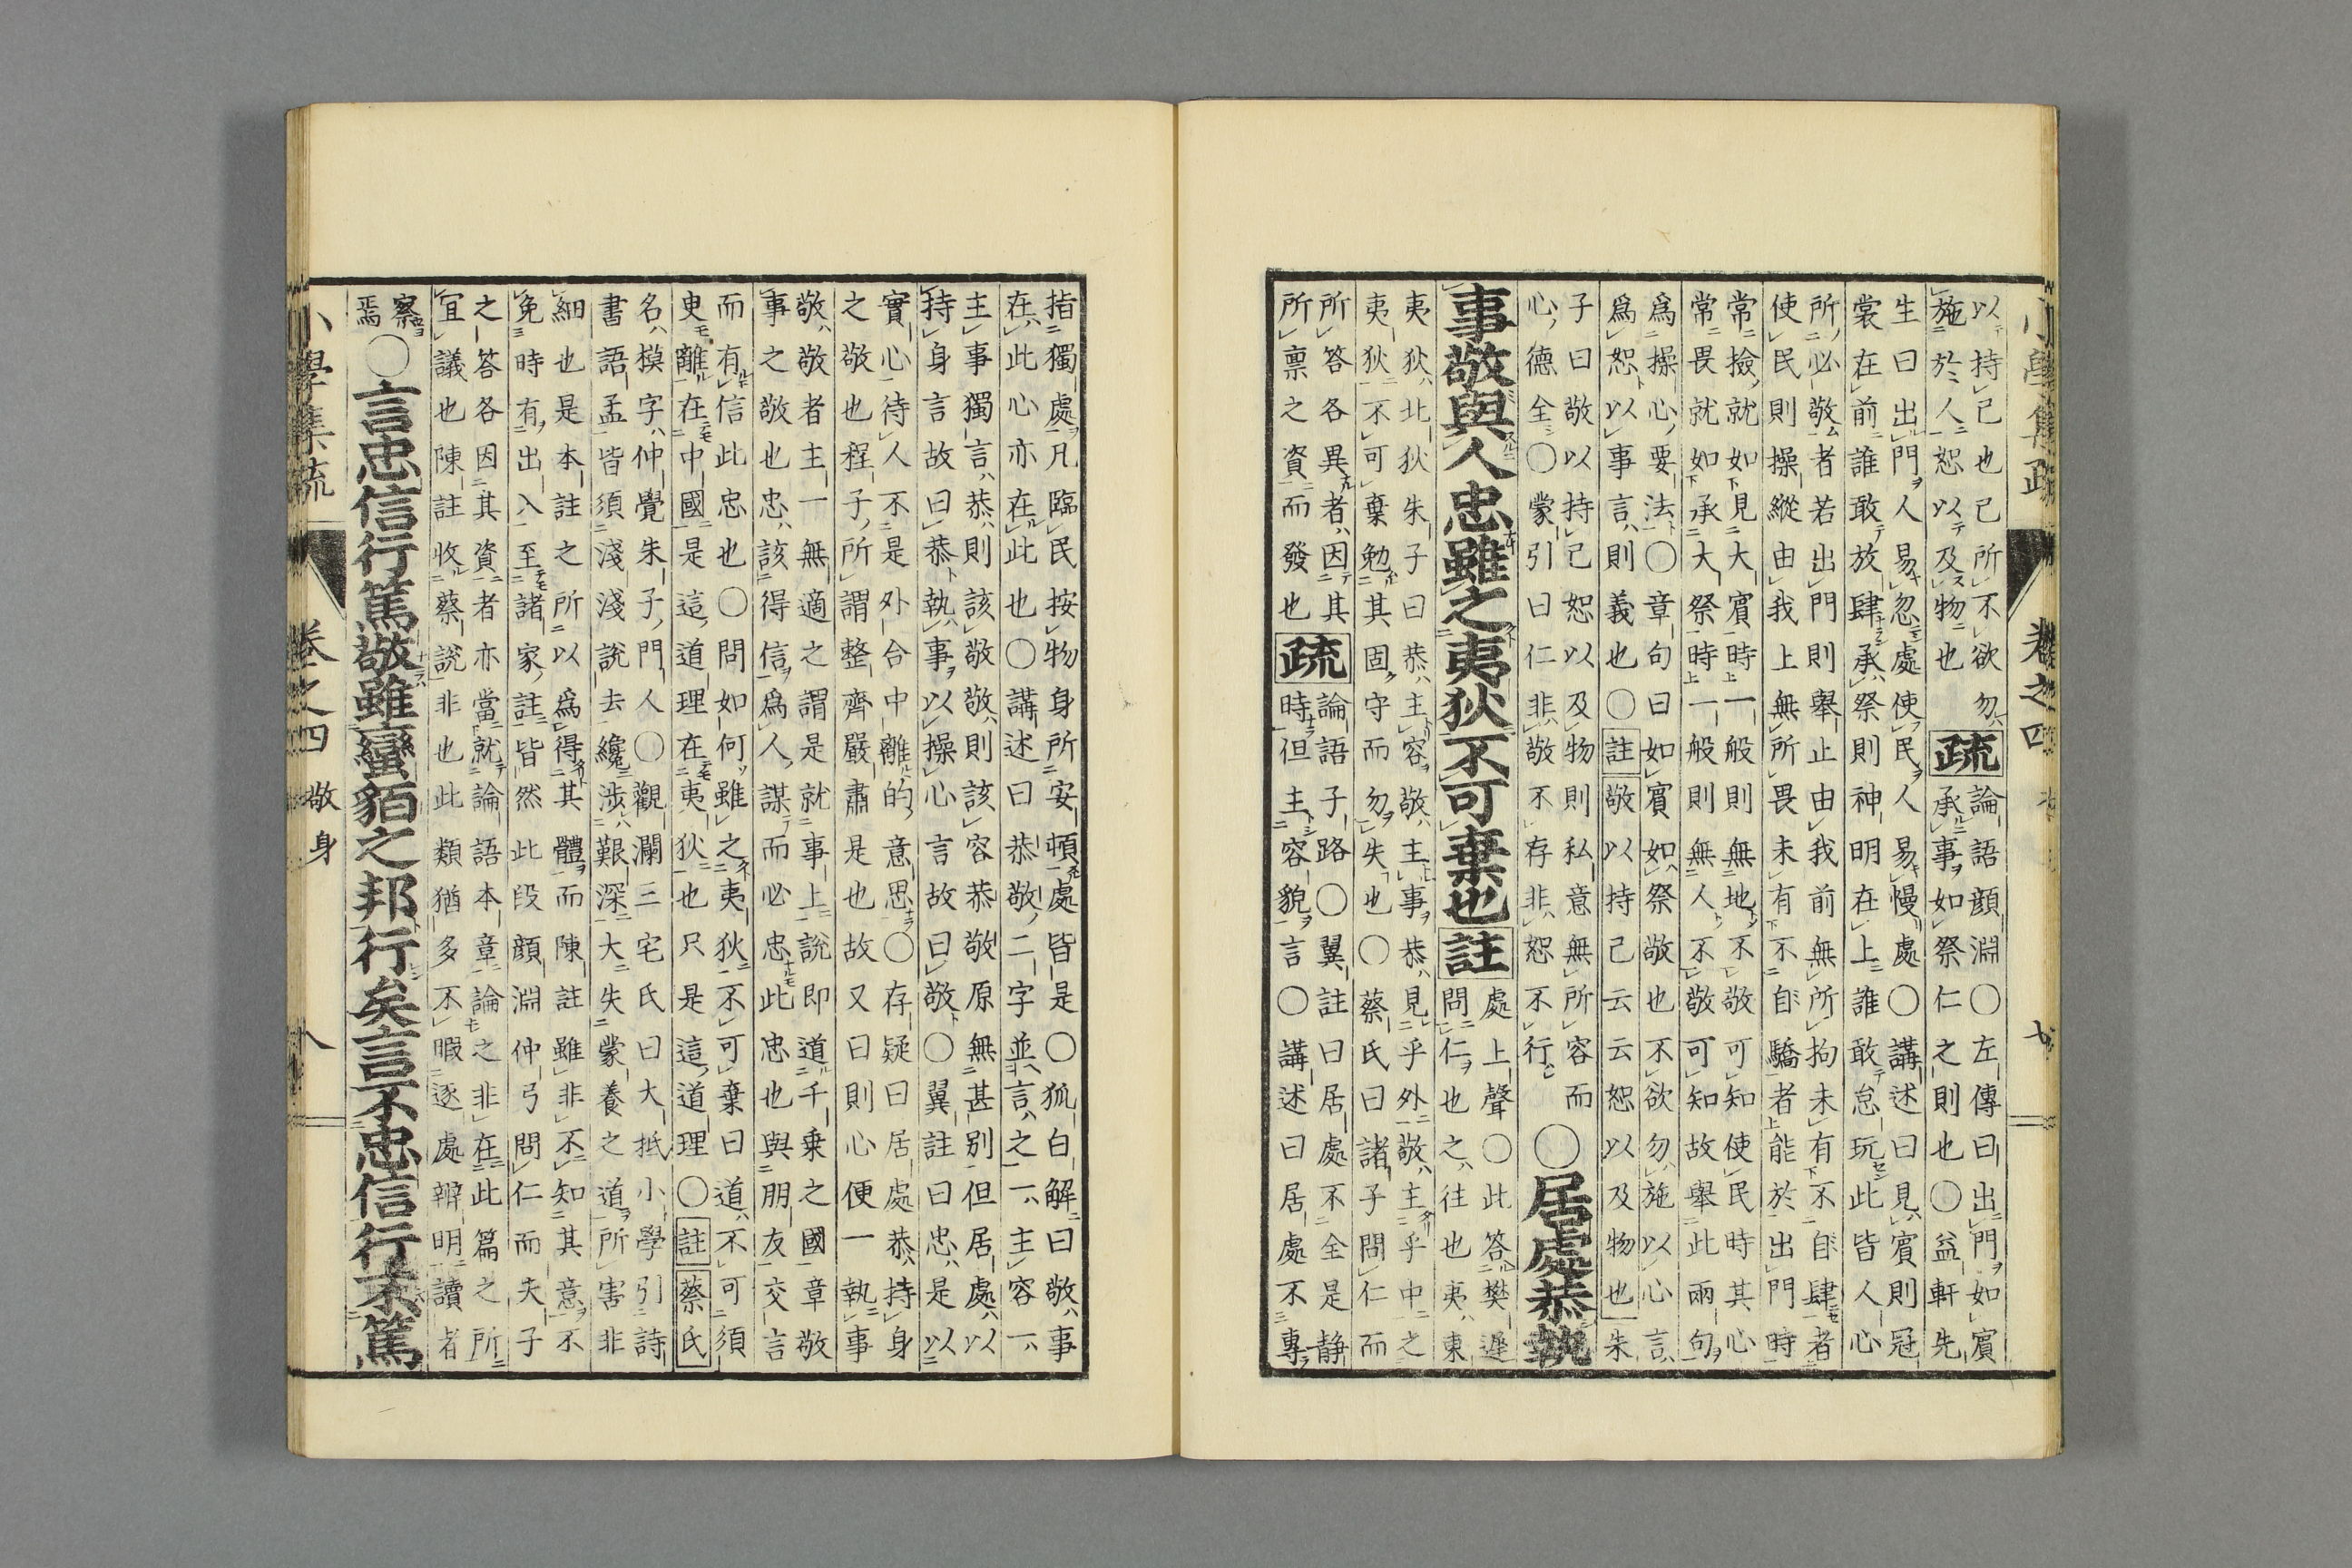 以持己也己所不欲勿
施於人恕以及物也
疏
論語顔淵〇左傳曰出門如賓
承事如祭仁之則也〇益軒先
生曰出門人易忽處使民人易慢處〇講述曰見賓則冠
裳在前誰敢放肆承祭則神明在上誰敢怠玩此皆人心
所必敬者若出門則舉止由我前無所拘未有不自肆者
使民則操縱由我上無所畏未有不自驕者能於出門時
常撿就如見大賓時一般則無地不敬可知使民時其心
常畏就如承大祭時一般則無人不敬可知故舉此兩句
爲操心要法〇章句曰如賓如祭敬也不欲勿施以心言
爲恕以事言則義也〇註敬以持己云云恕以及物也朱
子曰敬以持己恕以及物則私意無所容而
心德全〇蒙引曰仁非敬不存非恕不行
〇居處恭執
事敬與人忠雖之夷狄不可棄也
註
處上聲〇此答樊遲
問仁也之往也夷東
夷狄北狄朱子曰恭主容敬主事恭見乎外敬主乎中之
夷狄不可棄勉其固守而勿失也〇蔡氏曰諸子問仁而
所答各異者因其
所禀之資而發也
疏
論語子路〇翼註曰居處不全是静
時但主容貌言〇講述曰居處不專
指獨處凡臨民按物身所安頓處皆是〇狐白解曰敬事
在此心亦在此也〇講述曰恭敬二字並言之一主容一
主事獨言恭則該敬敬則該容恭敬原無甚別但居處以
持身言故曰恭執事以操心言故曰敬〇翼註曰忠是以
實心待人不是外合中離的意思〇存疑曰居處恭持身
之敬也程子所謂整齊嚴肅是也故又曰則心便一執事
敬敬者主一無適之謂是就事上說即道千乗之國章敬
事之敬也忠該得信爲人謀而必忠此忠也與朋友交言
而有信此忠也〇問如何雖之夷狄不可棄曰道不可須
臾離在中國是這道理在夷狄也只是這道理〇註蔡氏
名模字仲覺朱子門人〇觀瀾三宅氏曰大抵小學引詩
書語孟皆須淺淺說去纔涉艱深大失蒙養之道所害非
細也是本註之所以爲得其體而陳註雖非不知其意不
免時有出入至諸家註皆然此段顔淵仲弓問仁而夫子
之答各因其資者亦當就論語本章論之非在此篇之所
宜議也陳註收蔡說非也此類猶多不暇逐處辨明讀者
察
焉
〇言忠信行篤敬雖蠻貊之邦行矣言不忠信行不篤
小學集疏
卷之四
敬身
八